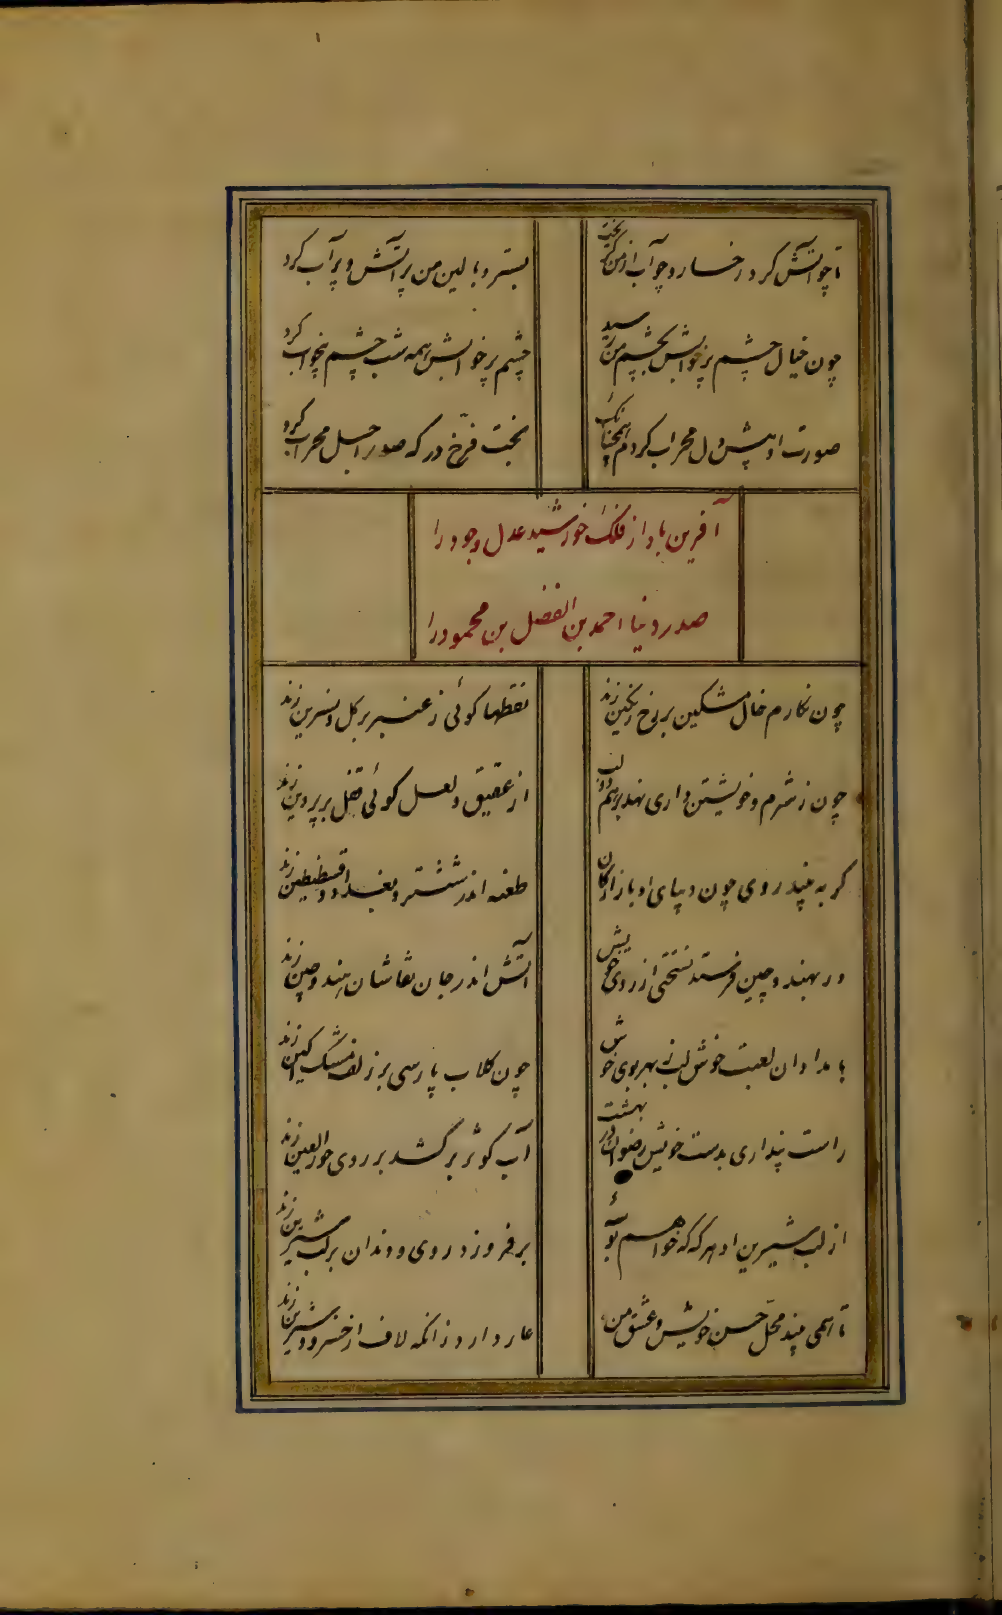 تا چو آتش کرد رخسار و چو آب از من گریخت
بستر و بالین من پر آتش و پر آب کرد
چون خیال چشم پرخوابش بچشم من رسید
چشم پرخوابش همه شب چشم من بیخواب کرد
صورت او پیش دل محراب کردم همچنانک
بخت فرخ درکه صدر اجل محراب کرد
آفرین باد از فلک خورشید عدل وجود را
صدر دنیا احمد بن الفضل بن محمود را
چون نکارم خال مشکین بر رخ رنکین زند
نقطها کوئی ز عنبر بر کل و نسرین زند
چون ز شرم و خویشتن داری نهد بر هم دو لب
از عقیق و لعل کوئی قفل بر پروین زند
کر به بیند روی چون دیبای او بازارکان
طعنه اندر ششتر و بغداد و قسطنطین زند
ور بهند و چین فرستد نسختی از روی خویش
آتش اندر جان نقاشان هند و چین زند
بامدادان لعبت خوش لب ز بهر بوی خوش
چون کلاب پارسی بر زلف مشک آکین زند
راست پنداری بدست خویش رضوان در بهشت
آب کوثر برکشد بر روی حورالعین زند
از لب شیرین او هرکه که خواهم بوٴ
برفروزد روی و دندان بر لب شیرین زند
تا همی بیند محل حسن خویش و عشق من
عار دارد زانکه لاف از خسرو و شیرین زند